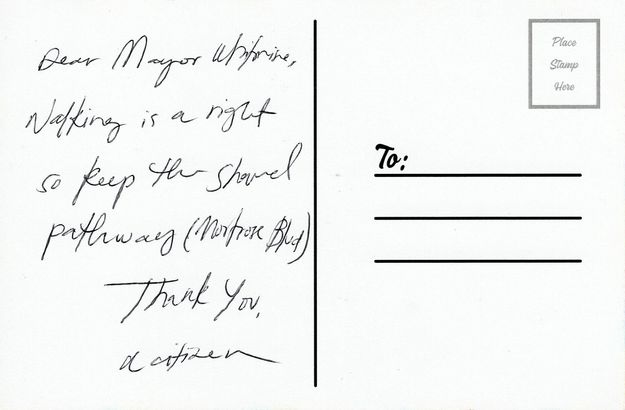 Dear Mayor Whitmire,
Walking is a right
so keep the shared
pathway (Montrose Blvd)
Thank You,
a citizen
Place
Stamp
Here
To: